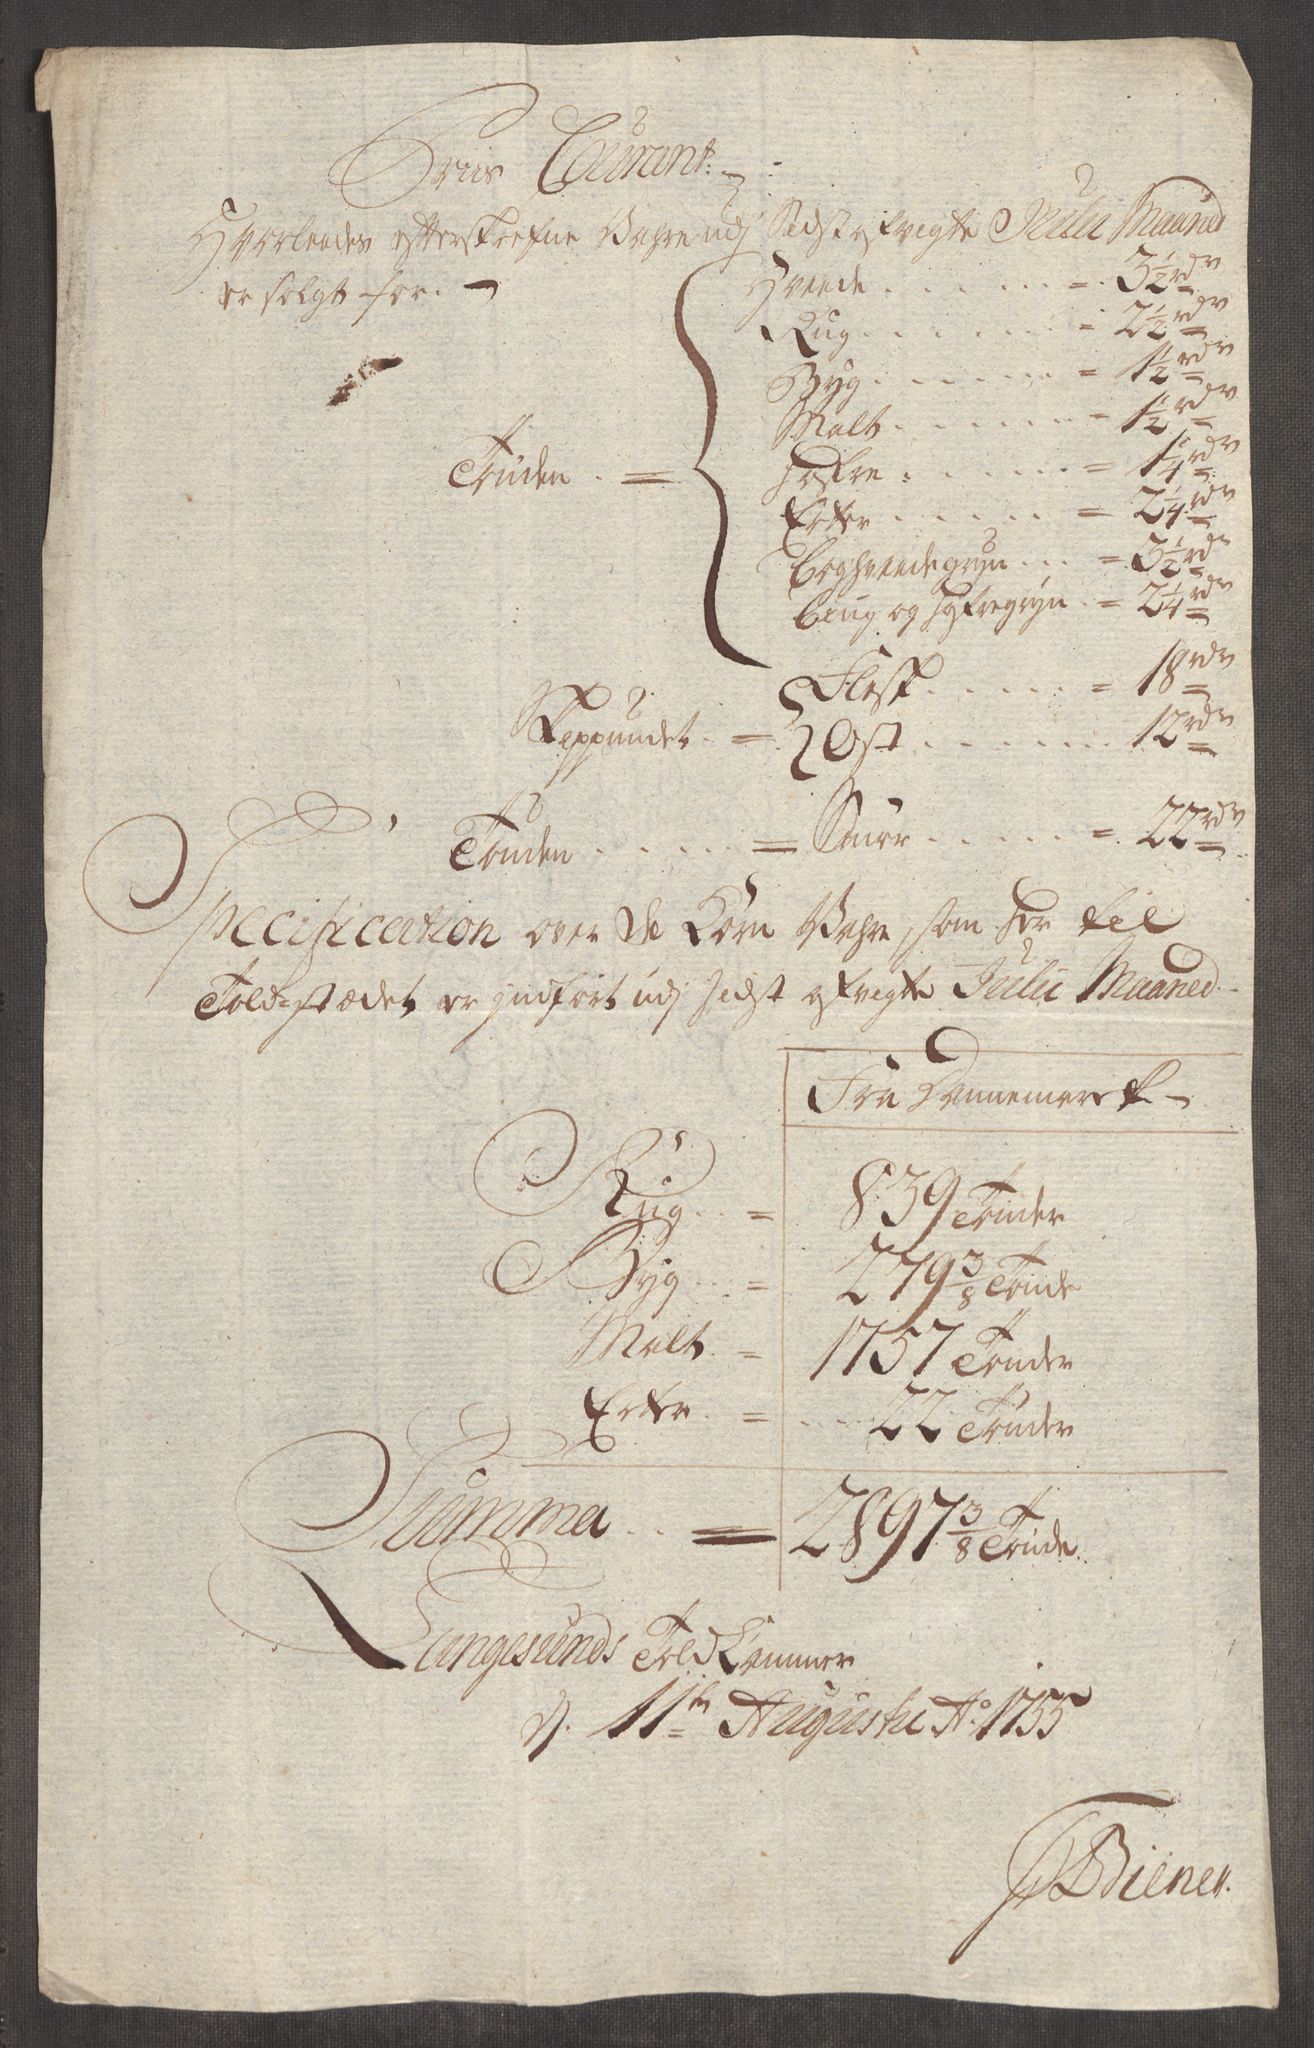 Priis Courant
Hvorleedes efterskrefne Vahre udj Sidst afvigte Julii Maaned
er solgt for.
Hveede = 3 1/2 rdr
Rug = 2 1/2 rdr
Byg = 1 1/2 rdr
Malt = 1 1/2 rdr
Tønden = Hafre = 1 1/4 rdr
Erter = 2 1/4 rdr
Boghveedegryn = 3 1/2 rdr
Biug og Hafregryn = 2 1/4 rdr
Flesk = 18 rdr
Skeppundet = Ost 12 rdr
Tønden = Smør = 22 rdr
Specification over de Korn Vahre, som her til
Told-stædet er jndført udj sidst afvigte Julii Maaned
Fra Dannemarck
Rug = 839 Tønder
Byg = 279 3/8 Tønde
Malt = 1757 Tønder
Erter = 22 Tønder
Summa = 2897 3/8 Tønde
Langesunds Told Kammer
d. 11te Augusti Ao 1755
Biener.